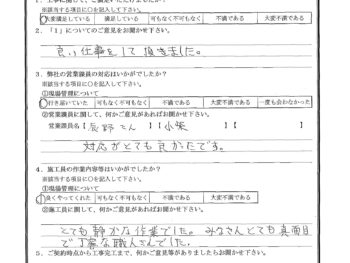 ※該当する項目に○を記入して下さい。
大変満足している 満足している 可もなく不可もなく 不満である 大変不満である
2．「1」についてのご意見をお聞かせ下さい。
良い仕事をして頂きました。
3．弊社の営業職員の対応はいかがでしたか？
※該当する項目に○を記入して下さい。
①現場管理について
行き届いていた 可もなく不可もなく 不満である 大変不満である 一度も会わなかった
②営業職員に関して、何かご意見があればお聞かせ下さい。
営業職員名【辰野さん】【小柴】【
対応がとても良かったです。
4．施工員の作業内容等はいかがでしたか？
※該当する項目に○を記入して下さい。
①現場管理について
良くやってくれた 可もなく不可もなく 不満である 大変不満である
②施工員に関して、何かご意見があればお聞かせ下さい。
とても静かな作業でした。みなさんとても真面目
で丁寧な職人さんでした。
5．ご契約時点から工事完工まで、何かご意見等がありましたらお聞かせ下さい。